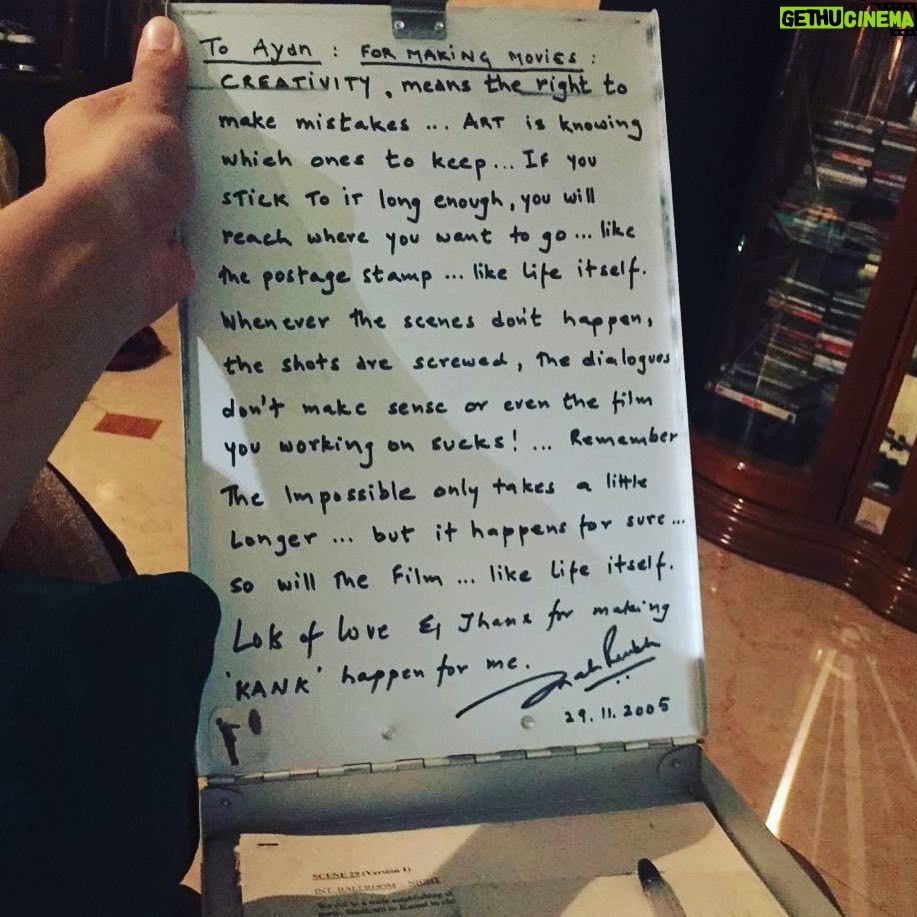 GETHUCINEMA
To Ayan : FOR MAKING MOVIES :
CREATIVITY, means the right to
make mistakes ... ART is knowing
which ones to keep... IF you
STICK TO IT long enough, you will
reach where you want to go... like
the postage stamp ... like life itself.
Whenever the scenes don't happen,
the shots are screwed, The dialogues
don't make sense or even the film
you working on sucks! ... Remember
The Impossible only takes a little
Longer ... but it happens for sure ...
so will The Film ... like life itself.
Lots of love & Thanx for making
'KANK' happen for me.
Shah Rukh
29.11.2005
SCENE 29 (Version I)
INT. BALLROOM NIGHT